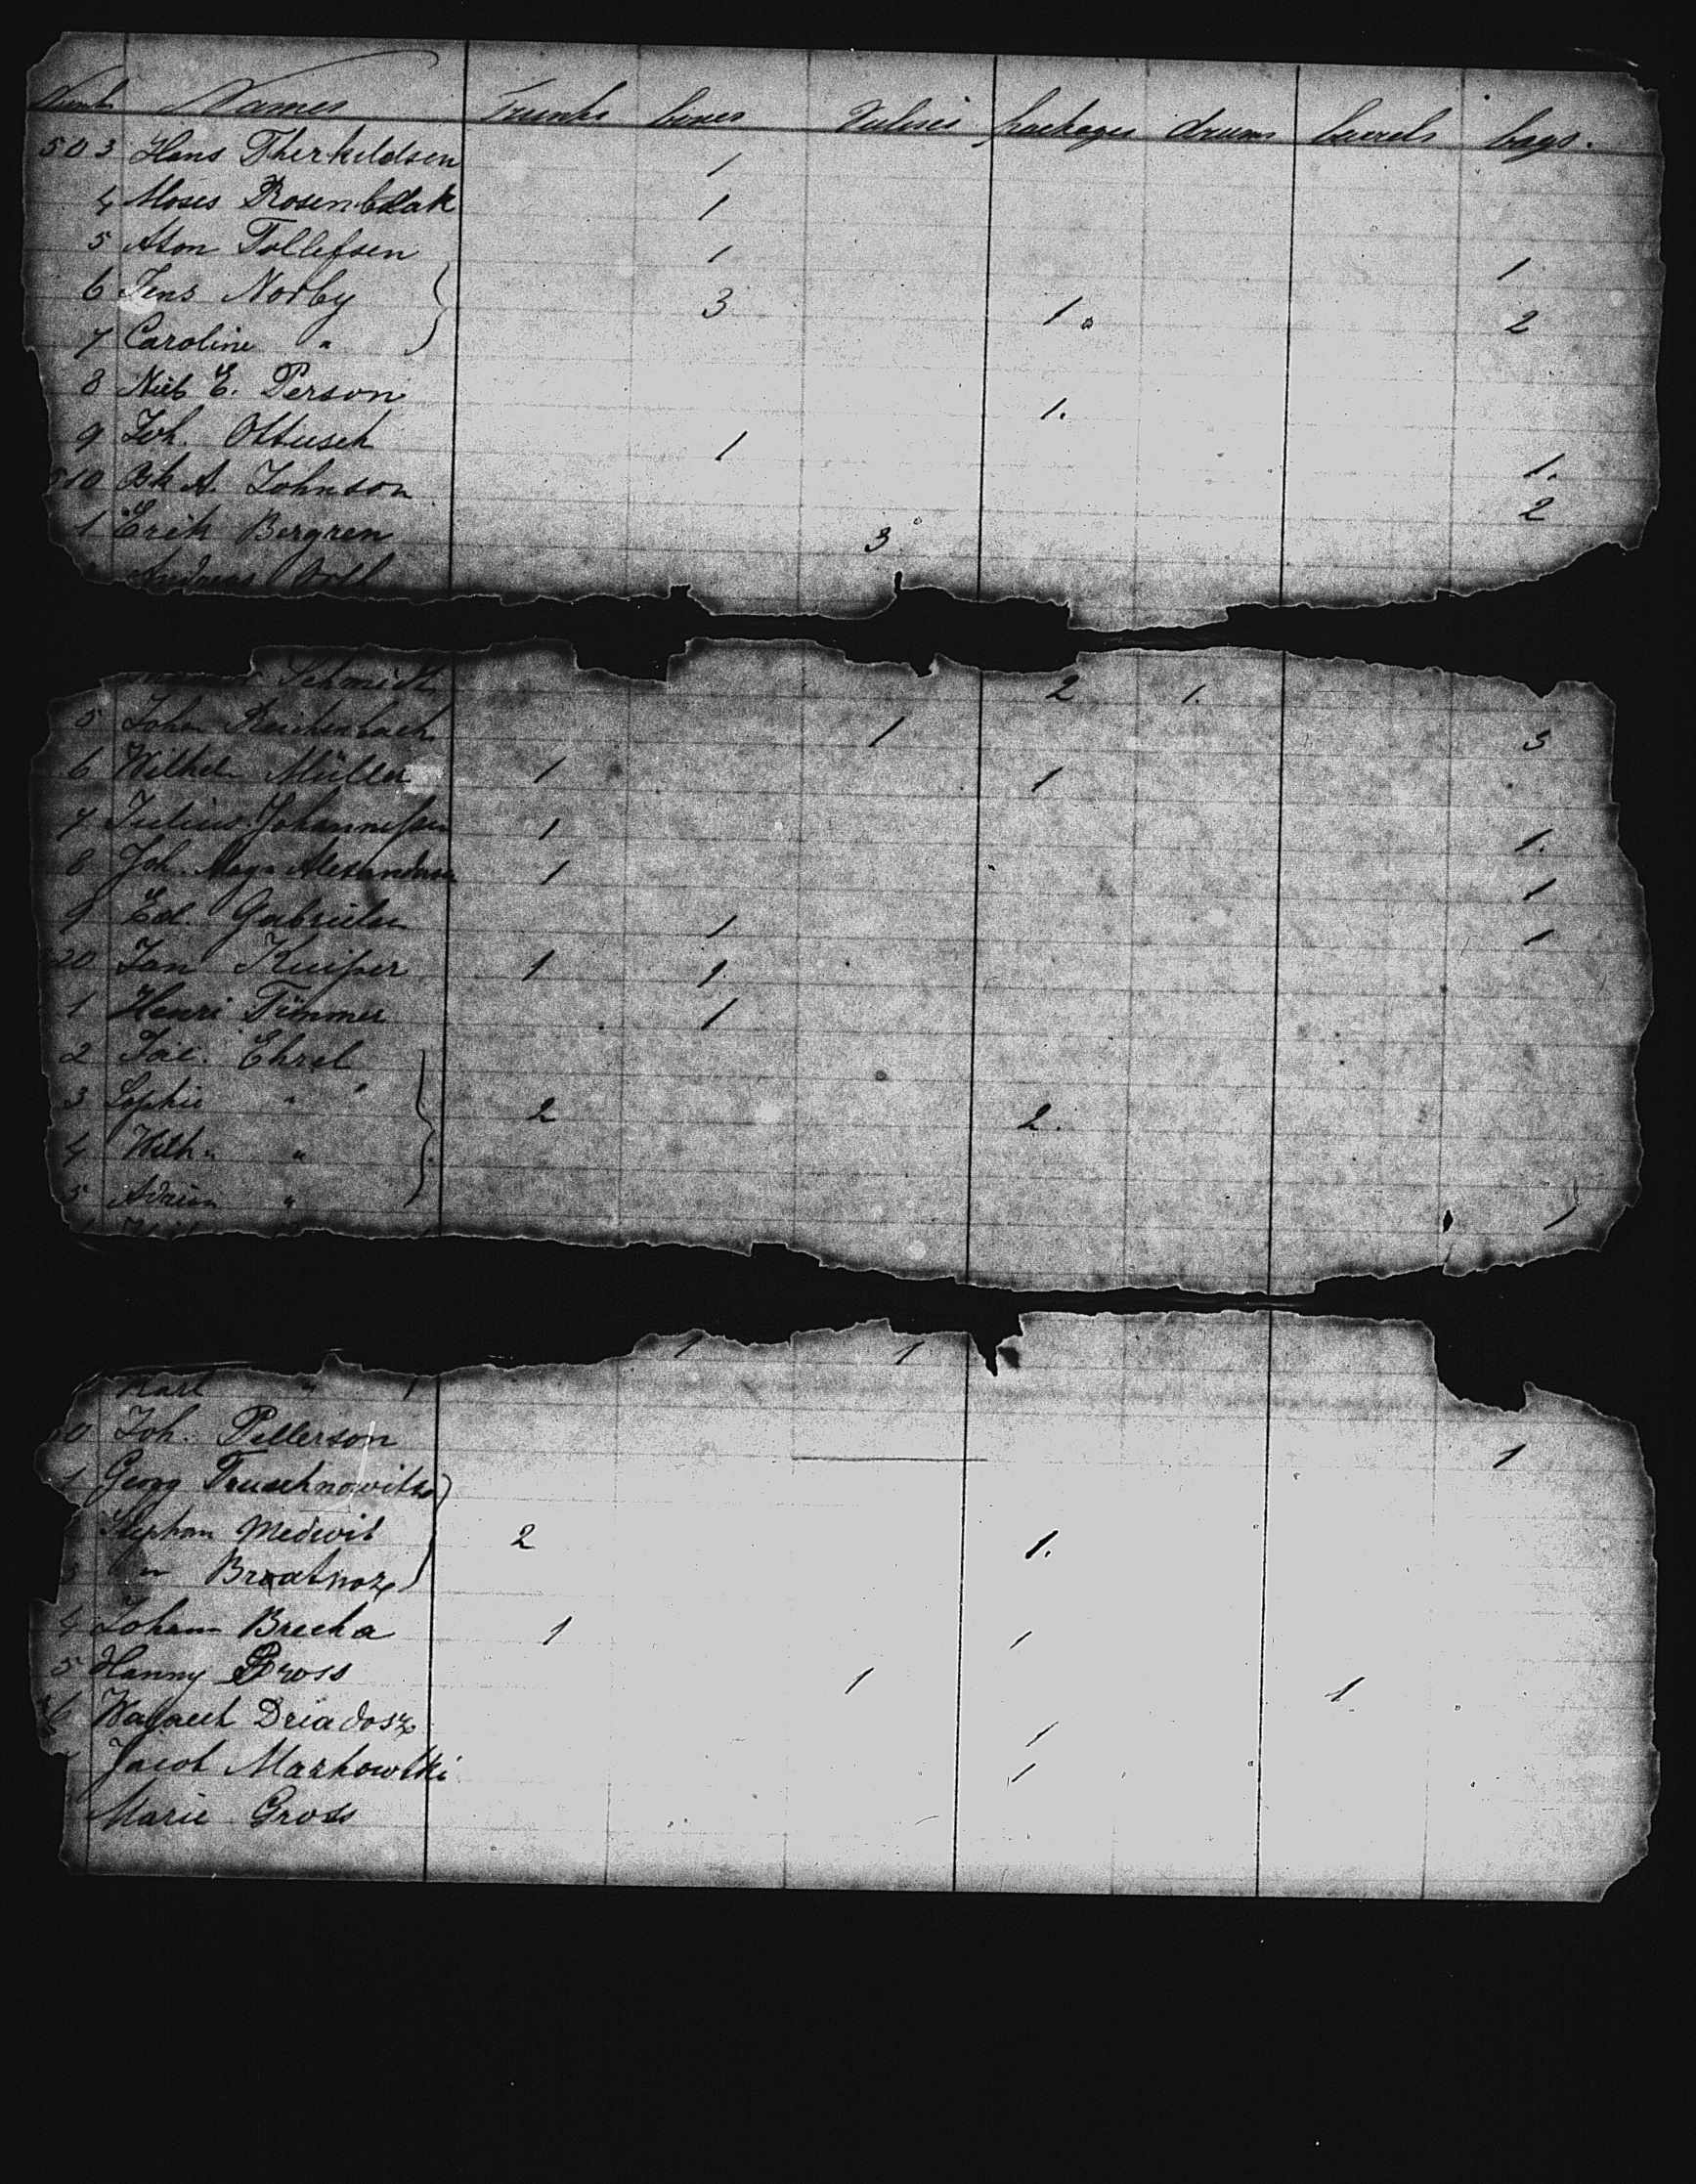 Names Trunks boxes Valises packages drums barrels bags.
503 Hans Therkildsen 1
4 Moses Rosenblak 1
5 Aton Tollefsen 1 1
6 Jens Norby 3 1. 2
7 Caroline "
8 Niels E. Person 1.
9 Joh. Ottusch 1 1.
510 A. Johnson 2
1 Erik Bergren 3
Andreas
Schmidt 2 1.
5 Johan Reichenbach 1 3
6 Wilhelm Müller 1 1
7 Julius Johannessen 1 1.
8 Joh. Magn Alexanderson 1 1
9 Ed. Gabrielen 1 1
20 Jan Kuiper 1 1.
1 Henri Timmer 1
2 Ehrel
3 Sophie " " 2 2.
4 Wilh. "
5 Adrian "
1
1 1
Karl "
0 Joh. Pellerson 1
1 Georg Truschnowitsch
Stephan Medwit 2 1.
3 " Braatnoz
4 Johann Brecha 1 1
5 Hanny Gross 1 1
6 Driadosz 1
Jacob Markowski 1
Marie Gross